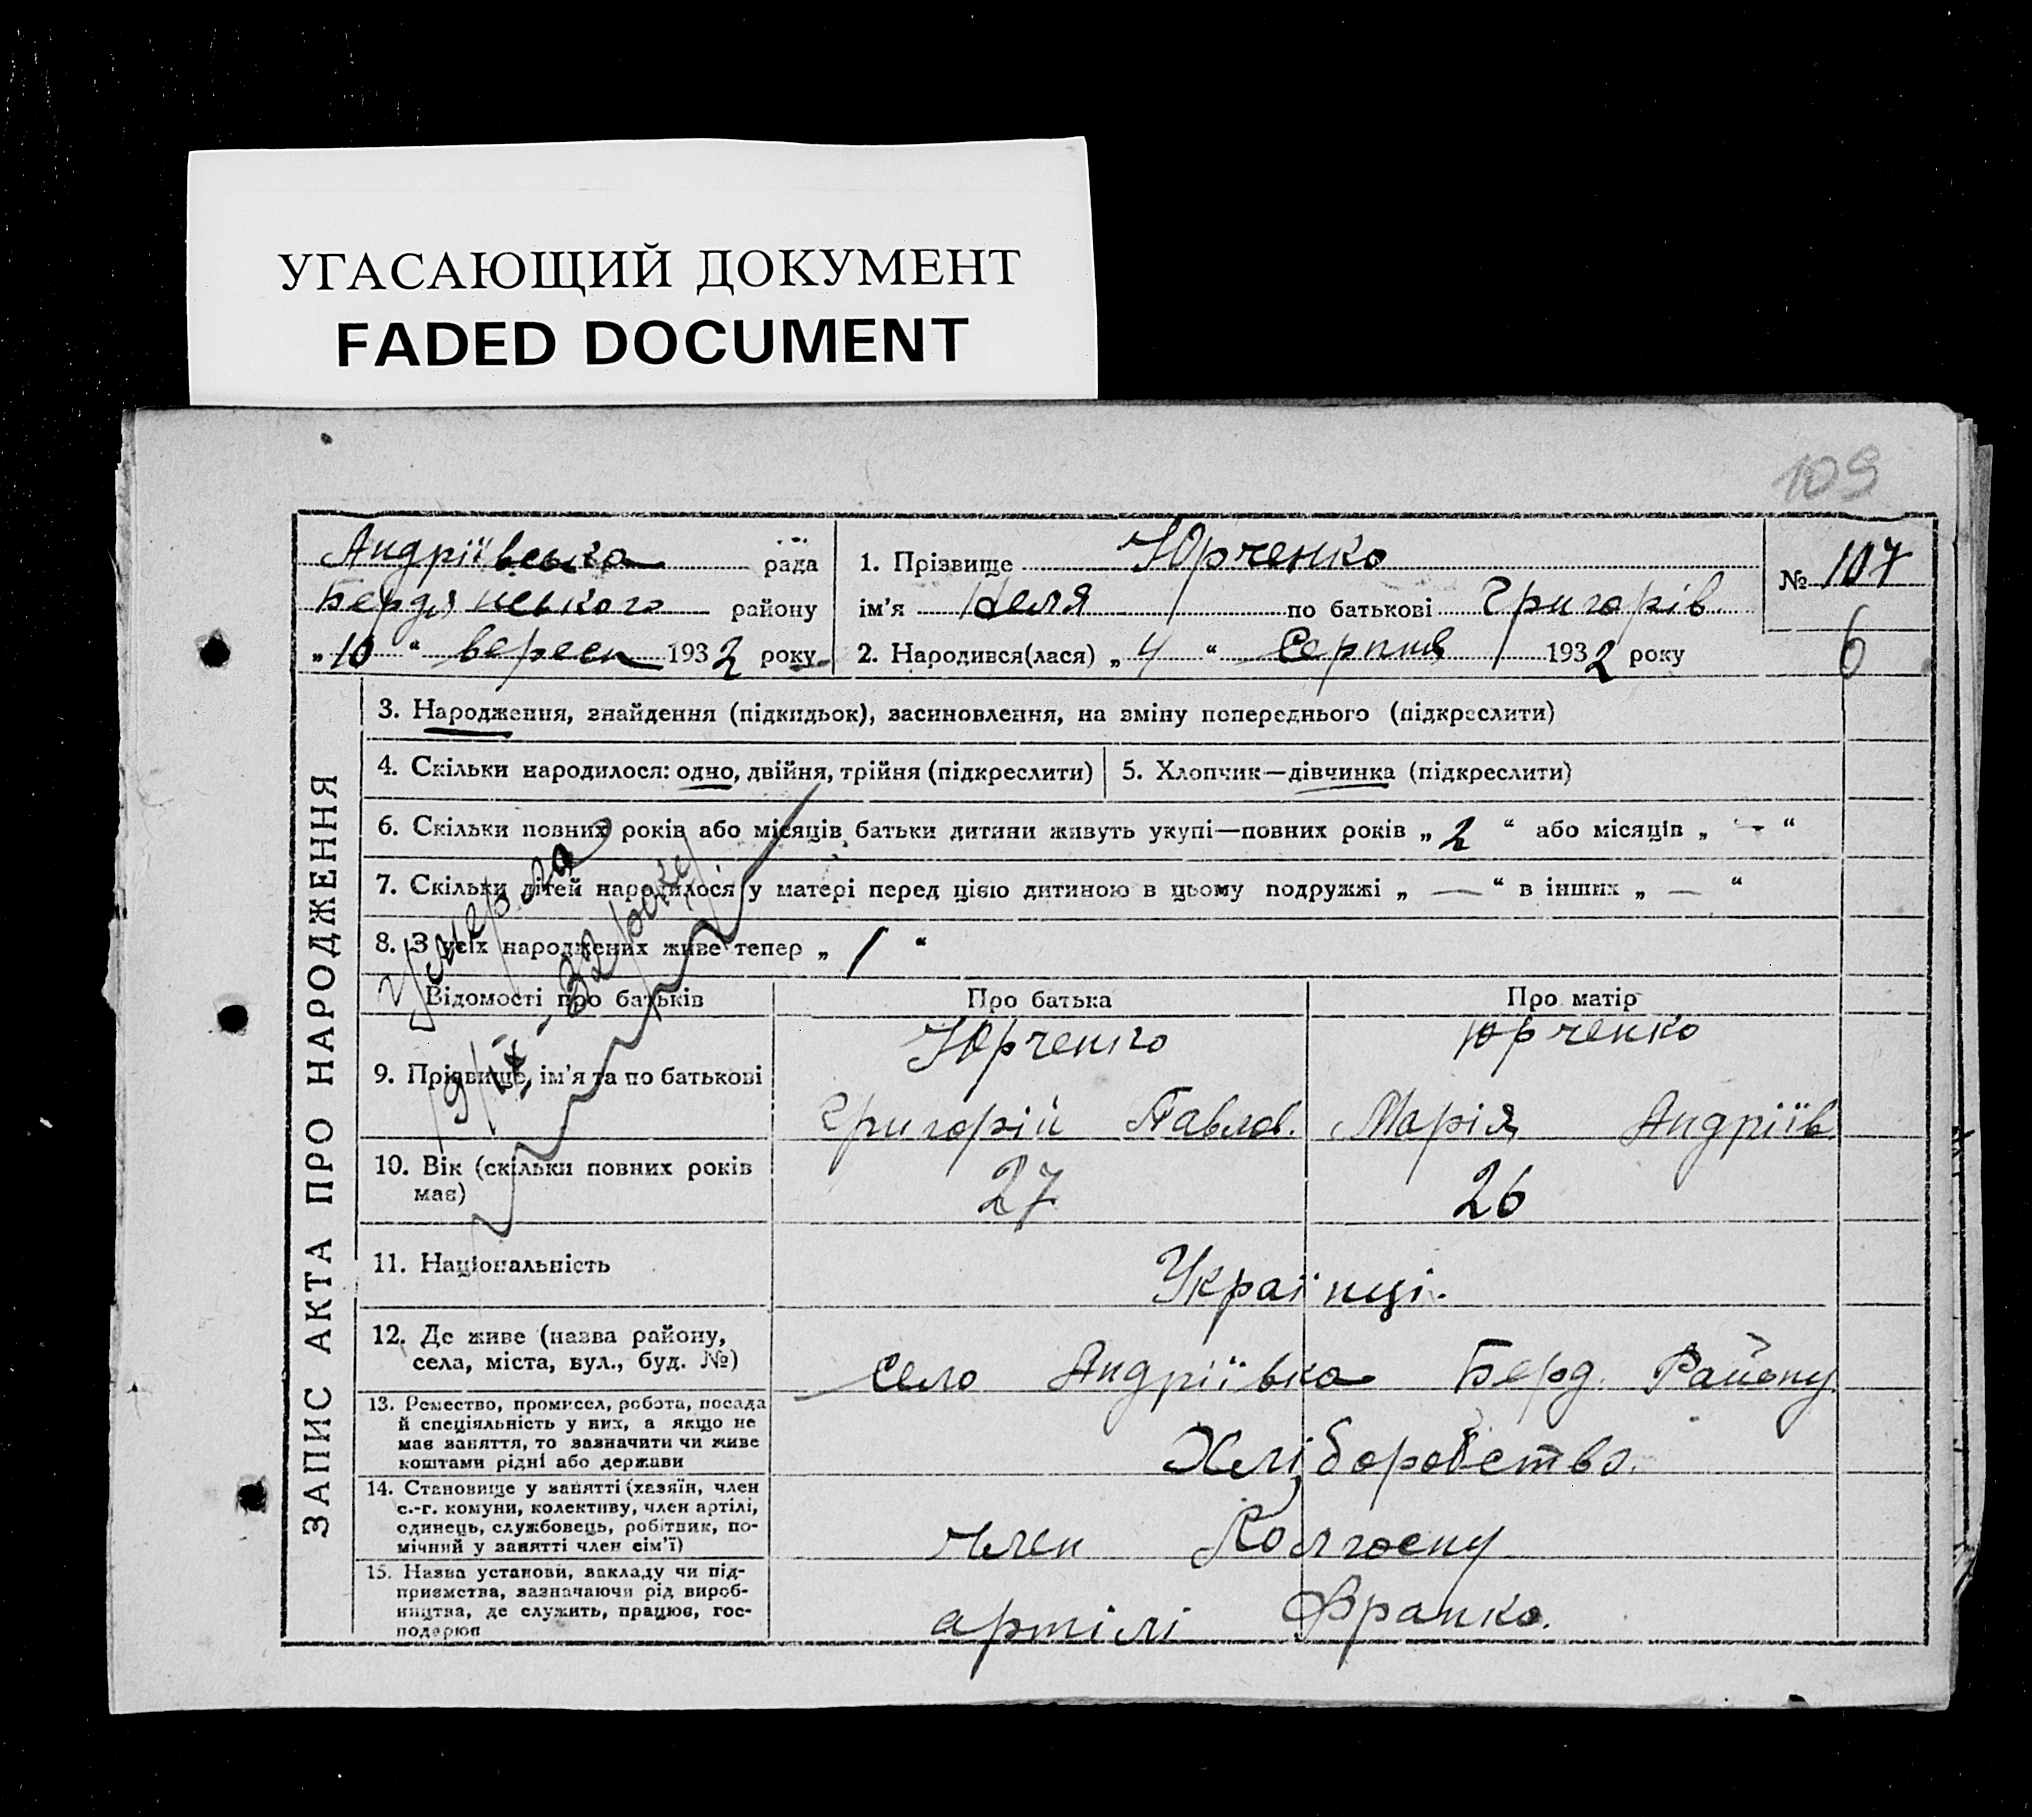 УГАСАЮЩИЙ ДОКУМЕНТ
FADED DOCUMENT
109
Андріївська рада
Бердянського району
„10“ вересн 1932 року
1. Прізвище Юрченко
ім’я Неля по батькові Григорів
2. Народився(лася) „4“ Серпня 1932 року
№ 107
6
ЗАПИС АКТА ПРО НАРОДЖЕННЯ
3. Народження, знайдення (підкидьок), засиновлення, на зміну попереднього (підкреслити)
4. Скільки народилося: одно, двійня, трійня (підкреслити)
5. Хлопчик—дівчинка (підкреслити)
6. Скільки повних років або місяців батьки дитини живуть укупі—повних років „2“ або місяців „—“
7. Скільки дітей народилося у матері перед цією дитиною в цьому подружжі „—“ в інших „—“
8. З усіх народжених живе тепер „1“
Умерла
9/IX - 32 року
Відомості про батьків
Про батька
Про матір
9. Прізвище, ім’я та по батькові
Юрченко
Григорій Павлов.
Юрченко
Марія Андріїв
10. Вік (скільки повних років
має)
27
26
11. Національність
Українці.
12. Де живе (назва району,
села, міста, вул., буд. №)
Село Андріївка Берд. Району
13. Ремество, промисел, робота, посада
й спеціяльність у них, а якщо не
має заняття, то зазначити чи живе
коштами рідні або держави
Хліборобство.
14. Становище у занятті (хазяїн, член
с.-г. комуни, колективу, член артілі,
одинець, службовець, робітник, по-
мічний у занятті член сім’ї)
член Колгоспу
15. Назва установи, закладу чи під-
приємства, зазначаючи рід вироб-
ництва, де служить, працює, гос-
подарює
артілі Франко.